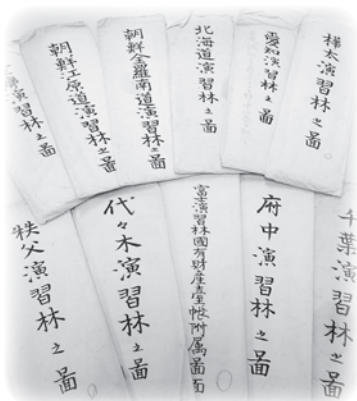 樺太演習林之圖
愛知演習林之圖
北海道演習林之圖
朝鮮全羅南道演習林之圖
朝鮮江原道演習林之圖
演習林之圖
千葉演習林之圖
府中演習林之圖
富士演習林國有財産臺帳附属圖面
代々木演習林之圖
秩父演習林之圖